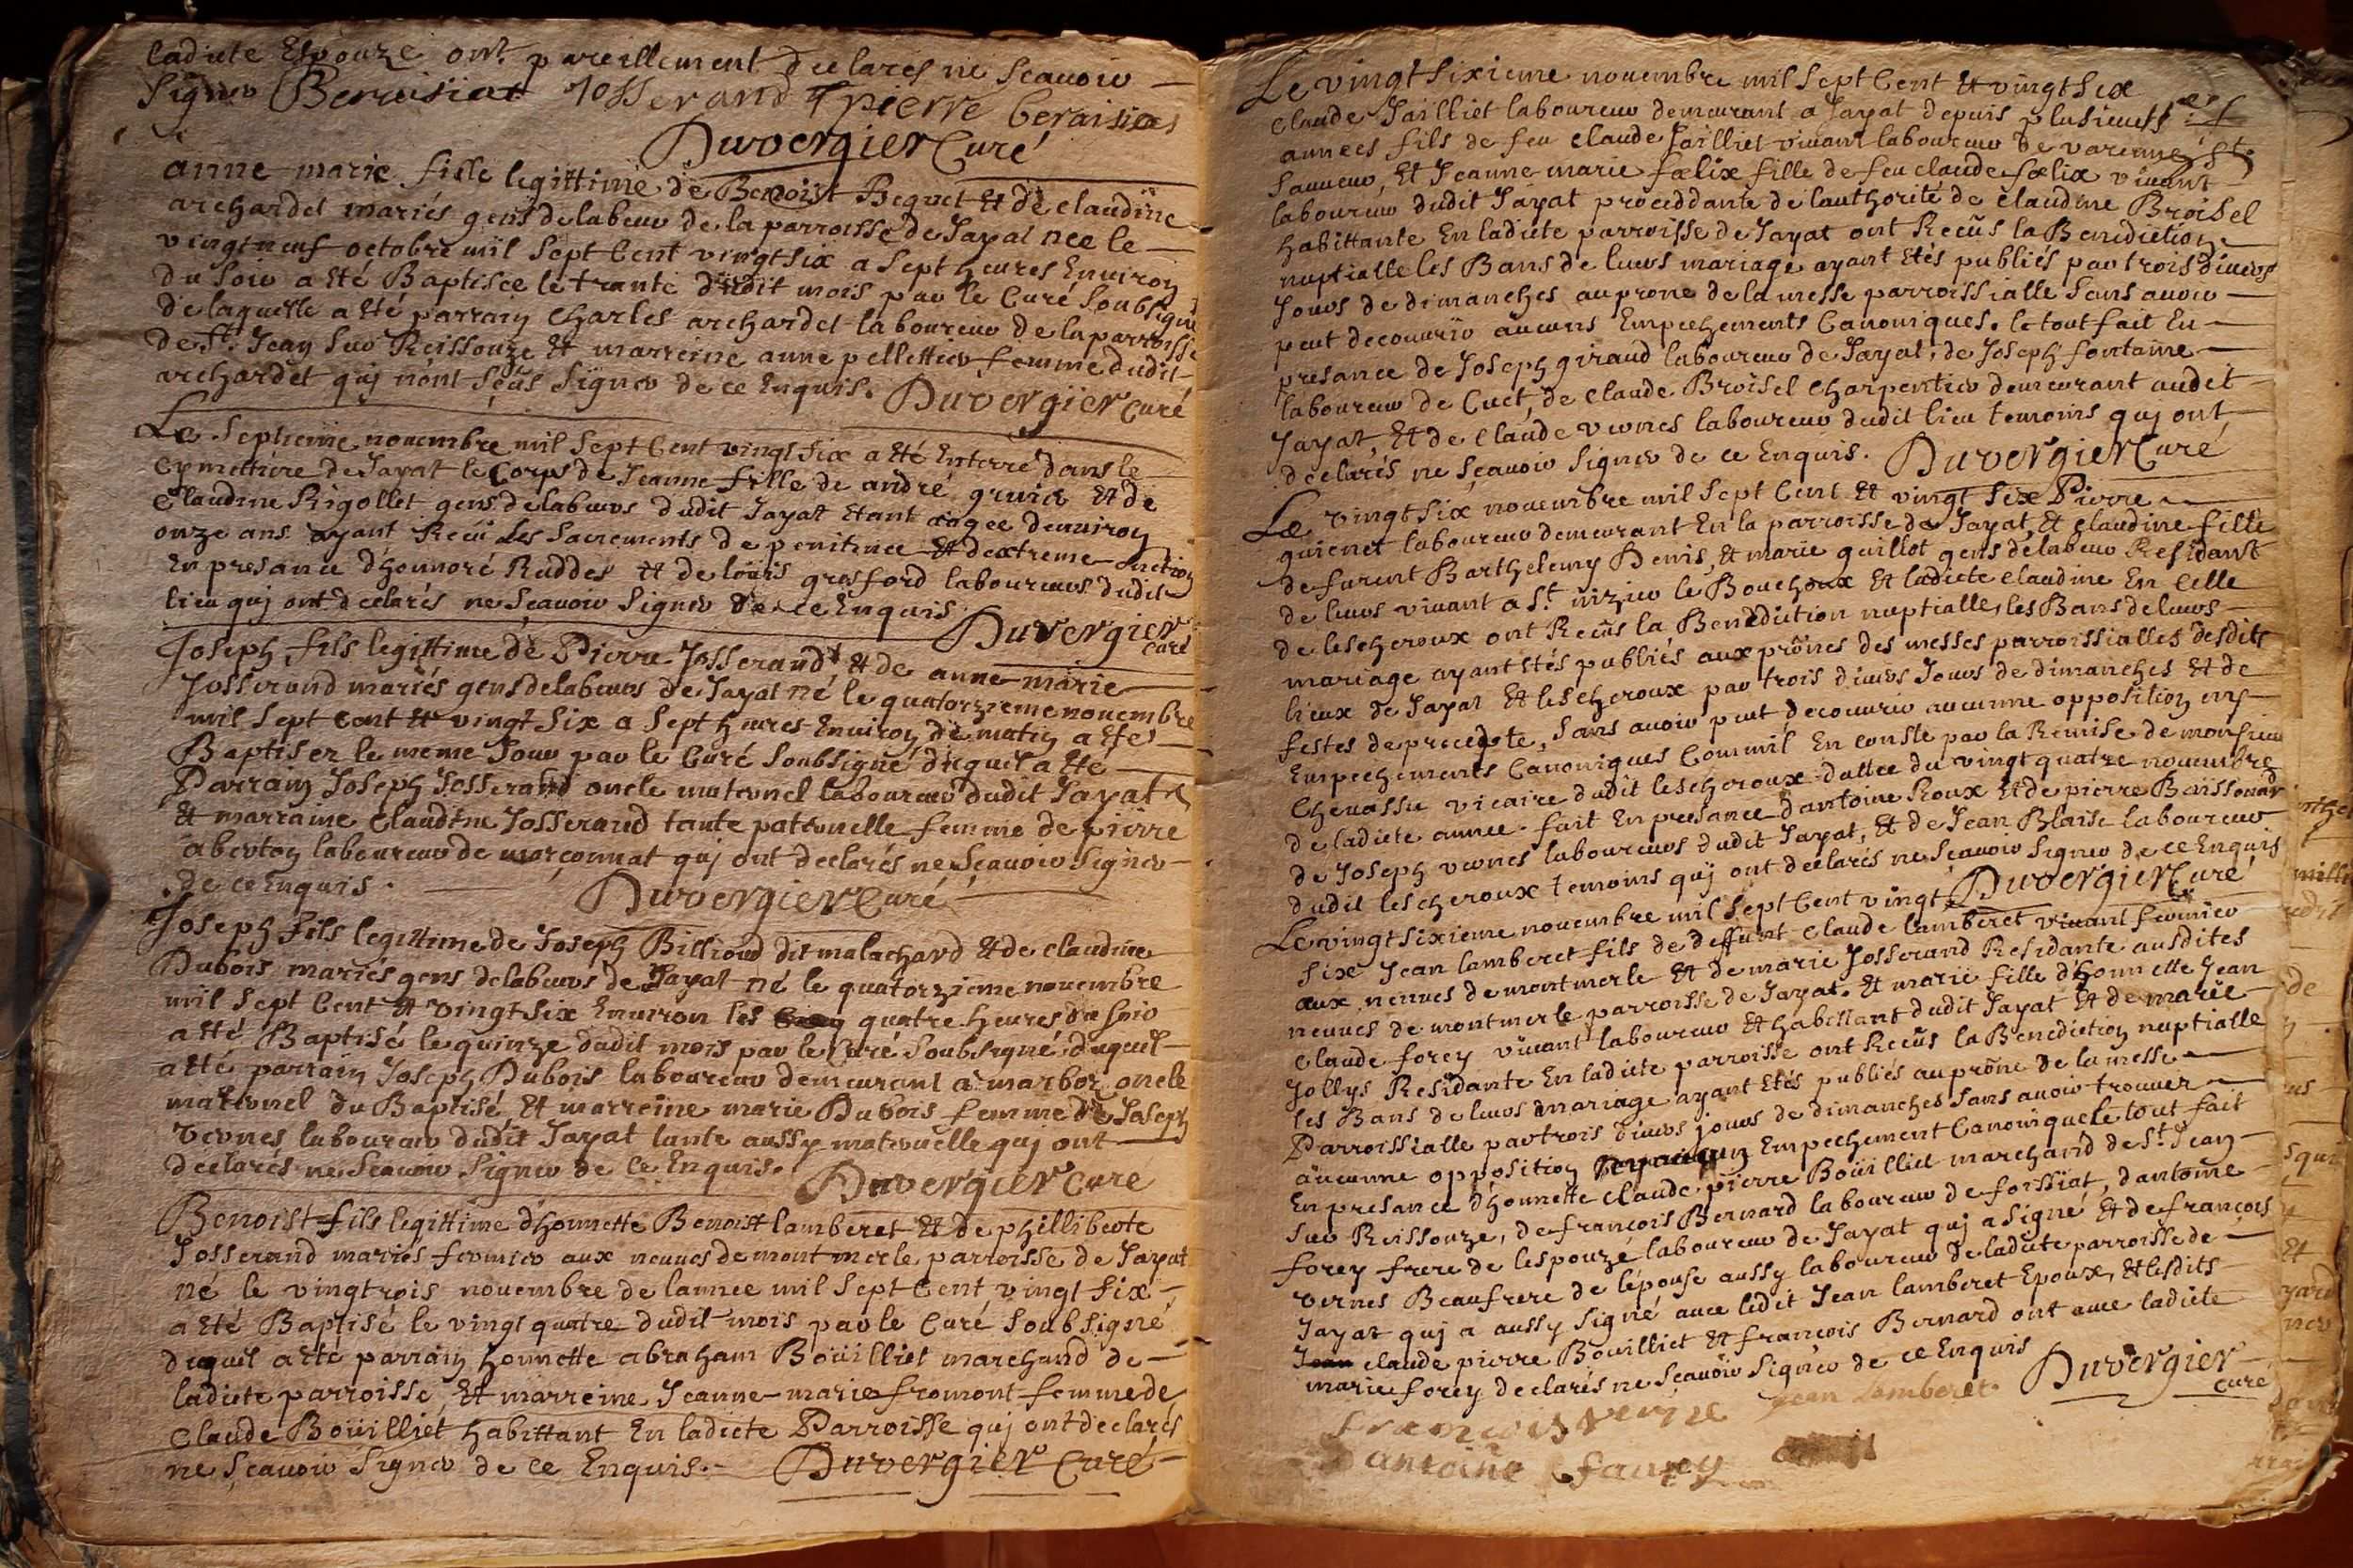 ladicte Espouze ont pareillement declares ne scauoir
signer Beraisiat Josserand pierre beraisiat
Duvergier Curé
anne-marie fille legittime de Benoist Bequet et de claudine
archardet mariés gens de labeur de la parroisse de Jayat née le
vingtneuf octobre mil sept Cent vingtsix a sept heures Enuiron
du soir a Eté Baptisée le trante dudit mois par le Curé soubsigné
de laquelle a Eté parrain Charles archardet laboureur de la parroisse
de St. Jean sur Reissouze Et marreine anne pellettier femme dudit
archardet quj n'ont sçeûs signer de ce Enquis. Duvergier curé
Le septieme nouembre mil sept Cent vingt six a Eté Enterré dans le
cymettiere de Jayat le Corps de Jeanne fille de andré Et de
claudine Rigollet gens de labeurs dudit Jayat Etant aagee denuiron
onze ans ayant Recû Les sacrements de penitence Et dextreme-onction
En presance d'honnoré Ruddes Et de loüis grosford laboureurs dudit
lieu quj ont declarés ne scauoir signer de ce Enquis.
Duvergier curé
Joseph fils legittime de Pierre Josserand Et de anne-marie
Josserand mariés gens de labeurs de Jayat né le quatorzieme nouembre
mil sept Cent Et vingt six a sept heures Enuiron du matin a Eté
Baptiser le meme Jour par le Curé soubsigné duquel a Eté
Parrain Joseph Josserand oncle maternel laboureur dudit Jayat
Et marraine Claudine Josserand tante paternelle femme de pierre
aberton laboureur de marçonnat quj ont declarés ne sçauoir signer
de ce Enquis. Duvergier Curé
Joseph fils legittime de Joseph Billioud dit malachard Et de claudine
Dubois mariés gens de labeurs de Jayat né le quatorzieme nouembre
mil sept Cent Et vingt six Enuiron les quatre heures du soir
a Eté Baptisé le quinze dudit mois par le Curé soubsigné, duquel
a Eté parrain Joseph Dubois laboureur demeurant a marboz oncle
maternel du Baptisé, Et marreine marie Dubois femme de Joseph
vernes laboureur dudit Jayat tante aussy maternelle quj ont
declarés ne scauoir signer de ce Enquis.
Duvergier Curé
Benoist fils legittime d'honnette Benoist lamberet Et de philliberte
Josserand mariés fermier aux neuues de montmerle parroisse de Jayat
né le vingtrois nouembre de lannee mil sept Cent vingt six
a Eté Baptisé le vingt quatre dudit mois par le Curé soubsigné
duquel a Eté parrain honnette abraham Boüilliet marchand de
ladicte parroisse, Et marreine Jeanne-marie fromont femme de
Claude Boüilliet habittant En ladicte Parroisse quj ont declarés
ne sçauoir signer de ce Enquis. Duvergier Curé
Le vingt sixieme nouembre mil sept Cent Et vingt six
claude Jailliet laboureur demeurant a Jayat depuis plusieurs
annees fils de feu claude Jailliet viuant laboureur de varenne St.
sauueur, Et Jeanne-marie fœlix fille de feu claude fœlix viuant
laboureur dudit Jayat proceddante de lauthorité de claudine Broisel
habittante En ladicte parroisse de Jayat ont Receûs la Benediction
nuptialle les Bans de leurs mariage ayant Etés publiés par trois diuers
Jours de dimanches au prone de la messe parroissialle sans auoir
peut decouurir aucuns Empechements Canoniques. le tout fait En
presance de Joseph giraud laboureur de Jayat, de Joseph fontaine
laboureur de Cuet, de claude Broisel charpentier demeurant audit
Jayat, Et de claude vernes laboureur dudit lieu temoins quj ont
declarés ne sçauoir signer de ce Enquis. Duvergier Curé
Le vingt six nouembre mil sept Cent Et vingt six Pierre
guienet laboureur demeurant En la parroisse de Jayat, Et claudine fille
de furent Barthelemy Denis, Et marie guillot gens de labeur Residant
de leurs viuant a St. nizier le Bouchoux Et ladicte claudine En celle
de lescheroux ont Receûs la Benediction nuptialle, les Bans de leurs
mariage ayant Etés publiés aux prônes des messes parroissialles desdits
lieux de Jayat Et lescheroux par trois diuers Jours de dimanches Et de
festes de precepte, sans auoir peut decouurir aucunne opposition nys
Empechements Canoniques Comm'il En conste par la Remise de monsieur
Cheuassu vicaire dudit lescheroux dattee du vingt quatre nouembre
de ladicte annee. fait En presance d'antoine Roux Et de pierre Buissonard
de Joseph vernes laboureurs dudit Jayat, Et de Jean Blaise laboureur
dudit lescheroux temoins quj ont declarés ne sçauoir signer de ce Enquis
Duvergier Curé
Le vingt sixieme nouembre mil sept Cent vingt
six Jean lamberet fils de deffunt claude lamberet viuant fermier
aux neuues de montmerle Et de marie Josserand Residante ausdites
neuues de montmerle parroisse de Jayat. Et marie fille d'honnette Jean
claude forey viuant laboureur Et habittant dudit Jayat Et de marie
Jollys Residante En ladicte parroisse ont Receûs la Benediction nuptialle
les Bans de leurs mariage ayant Etés publiés au prône de la messe
Parroissialle par trois diuers jours de dimanches sans auoir trouuer
aucunne opposition Empechement Canonique le tout fait
En presance d'honnette claude-pierre Boüilliet marchand de St. Jean
sur Reissouze, de francois Bernard laboureur de foissiat, d'antoine
forey frere de lespouzé laboureur de Jayat quj a signé Et de francois
vernes Beaufrere de lépouse aussy laboureur de ladicte parroisse de
Jayat quj a aussy signé auec ledit Jean lamberet Epoux, Et lesdits
claude pierre Bouilliet Et francois Bernard ont auec ladicte
marie forey declarés ne sçauoir signer de ce Enquis
Duvergier curé
Jean lamberet
antoine